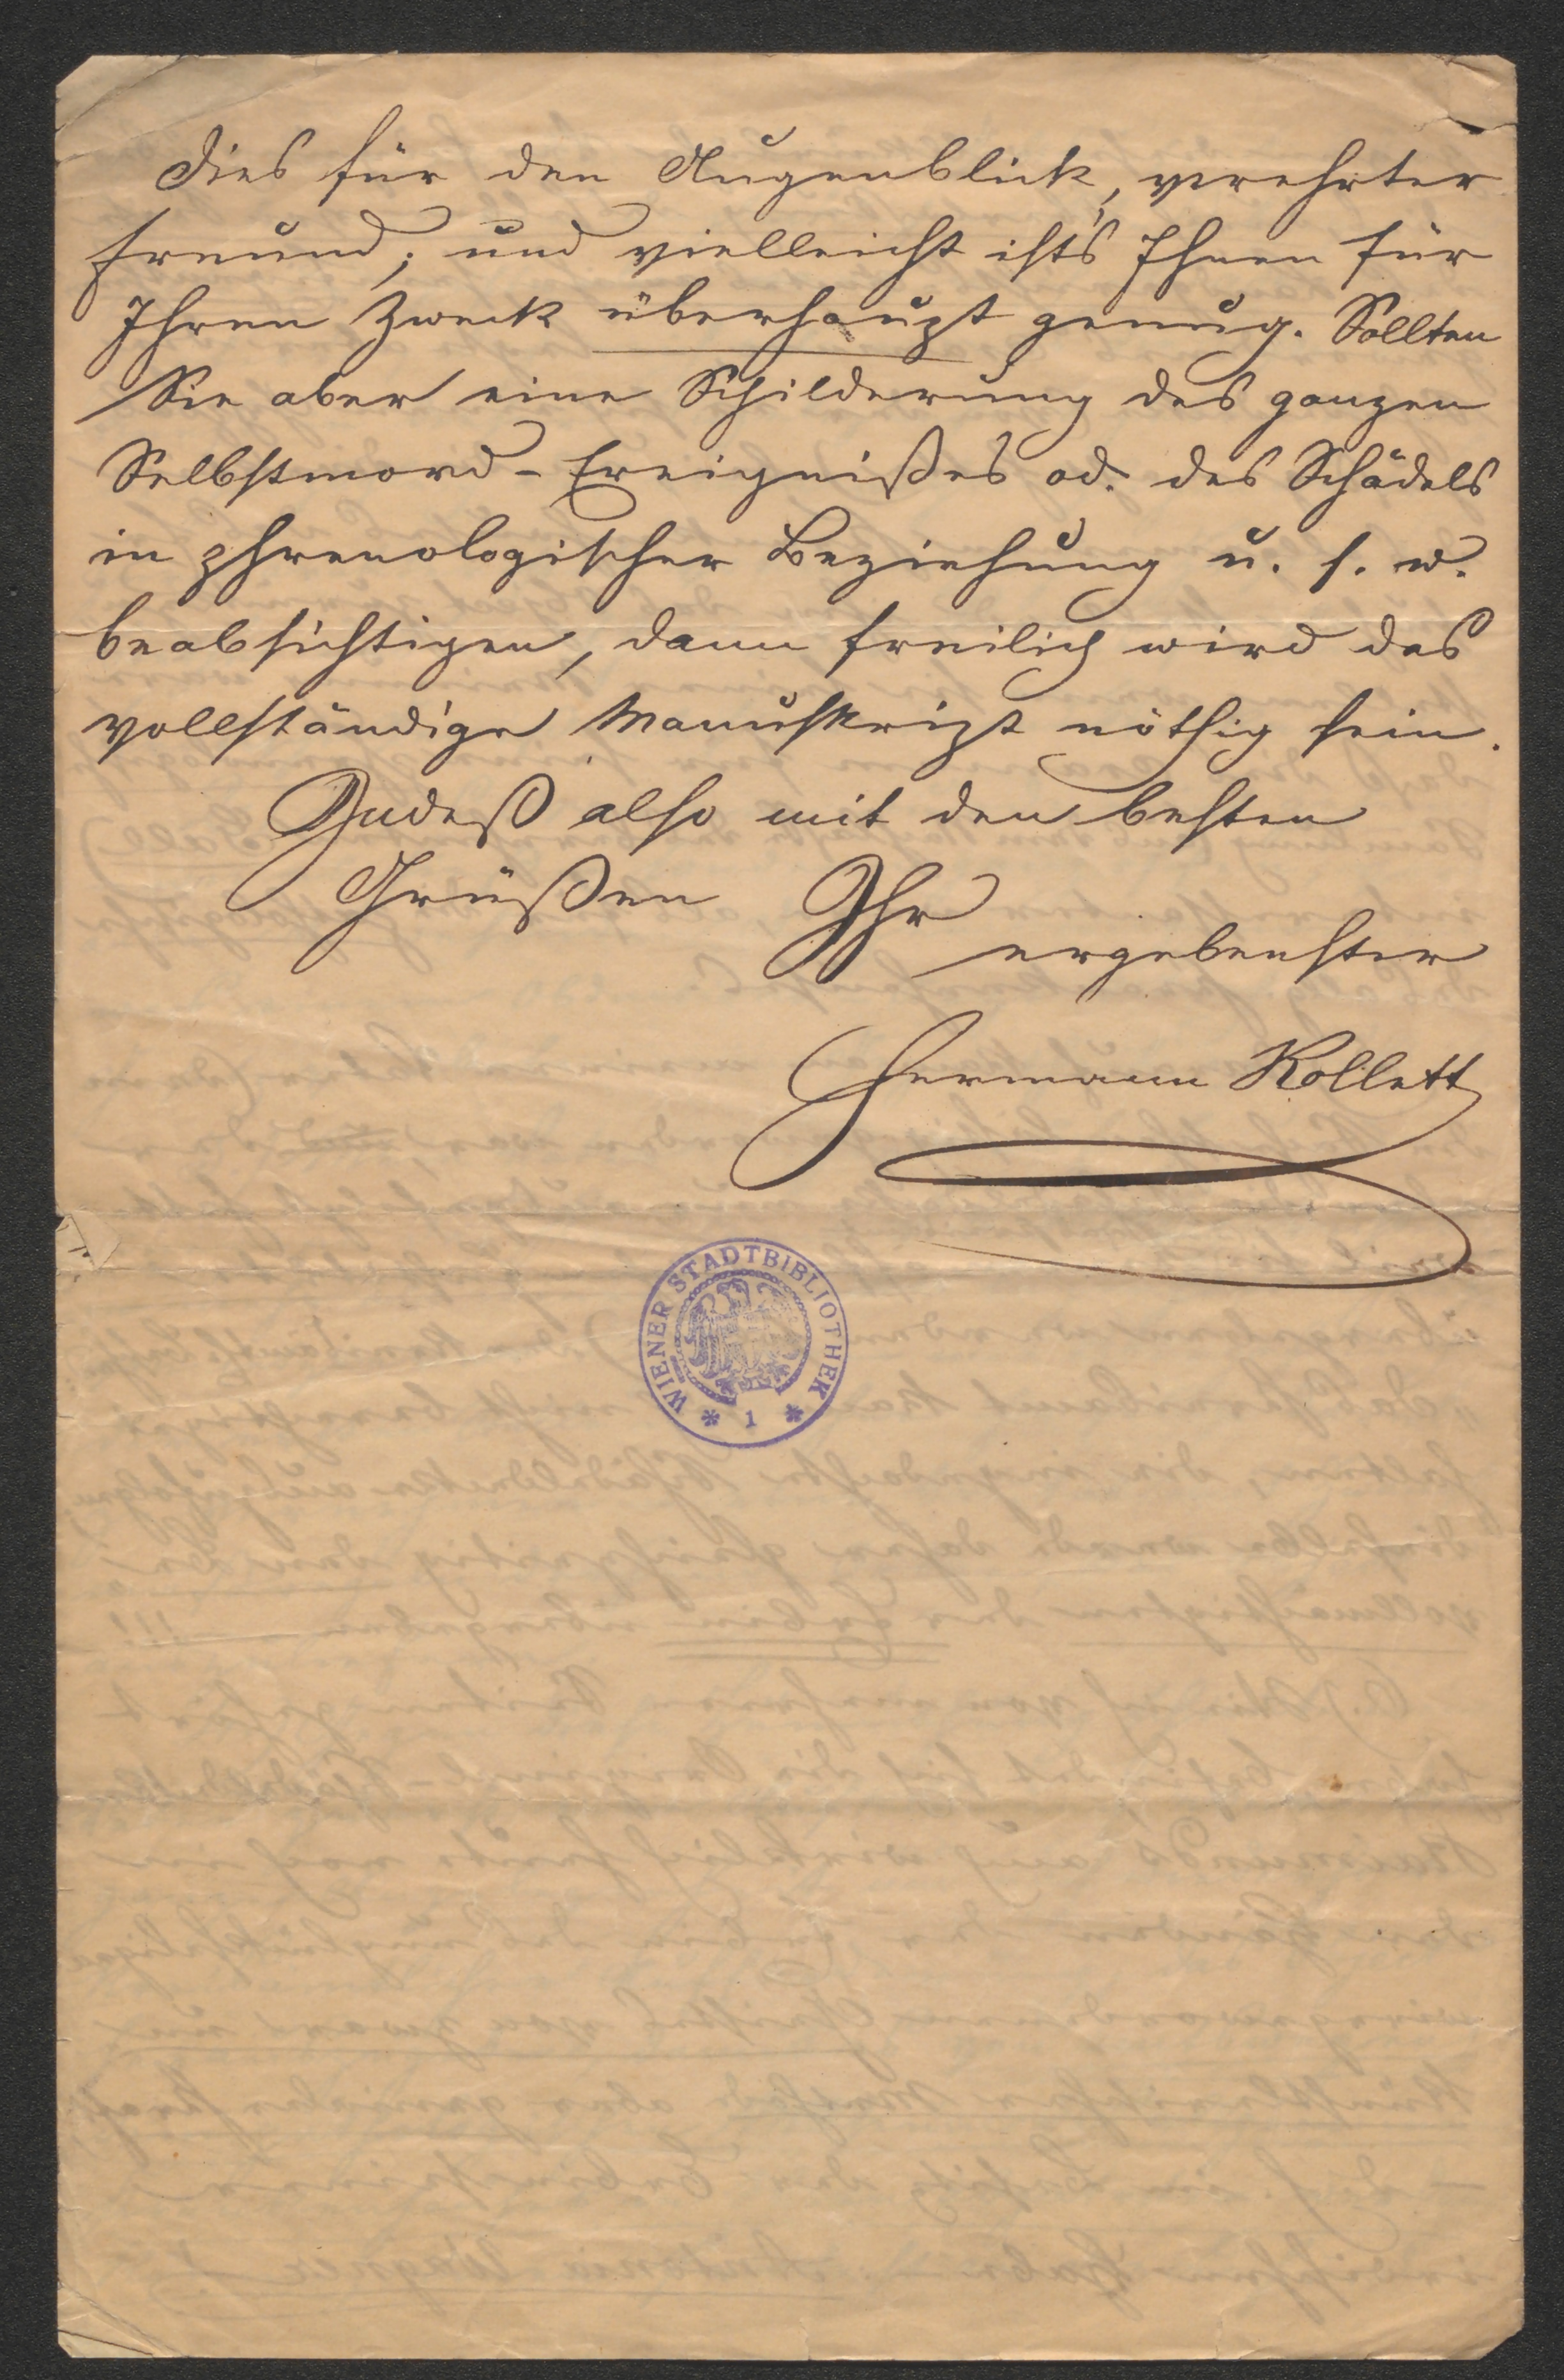 Dies für den Augenblick, verehrter
Freund; und vielleicht ist's Ihnen für
Ihren Zweck überhaupt genug. Sollten
Sie aber eine Schilderung des ganzen
Selbstmord-Ereignißes od. des Schädels
in phrenologischer Beziehung u. s. w.
beabsichtigen, dann freilich wird das
vollständige Manuskript nöthig sein.
Indeß also mit den besten
Grüßen Ihr
ergebenster
Hermann Rollett
WIENER STADTBIBLIOTHEK
* 1 *